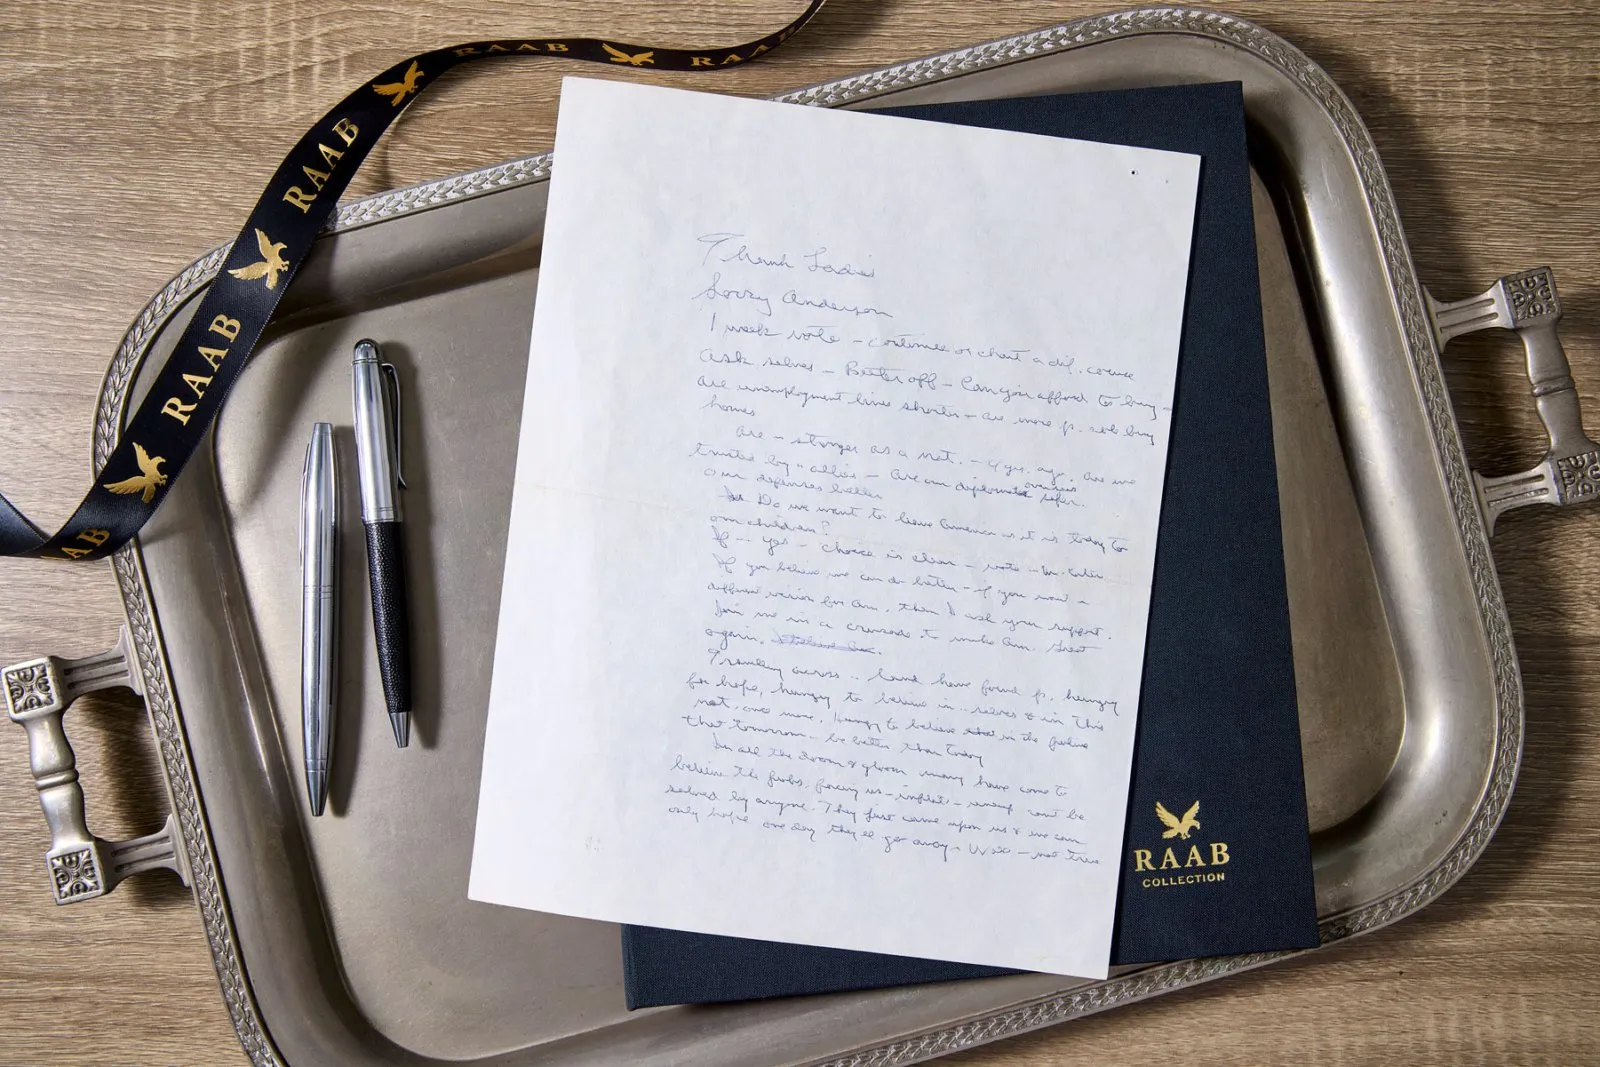 RAAB
RAAB
RAAB
RAAB
RAAB
Thank Ladies
Sorry Anderson
1 week vote – continue or chart a dif. course
ask selves – Better off – Can you afford to buy –
are unemployment lines shorter – are more p. able buy
homes
Are – stronger as a nat. – 4 yrs. ago. Are we
trusted by allies – Are our diplomats overseas safer.
Our defenses better
Do we want to leave America as it is today to
our children?
If – yes – choice is clear – vote – Mr. Carter
If you believe we can do better – if you want a
different vision for Am. then I ask your support.
Join me in a crusade to make Am. Great
again.
Traveling across .. land have found p. hungry
for hope, hungry to believe in .. selves & in this
nat. once more. Hungry to believe in the future
that tomorrow – be better than today
In all the doom & gloom many have come to
believe the probs. facing us – inflat. – unemp. can't be
solved by anyone. They just came upon us & we can
only hope one day they'll go away. Well – not true
RAAB
COLLECTION